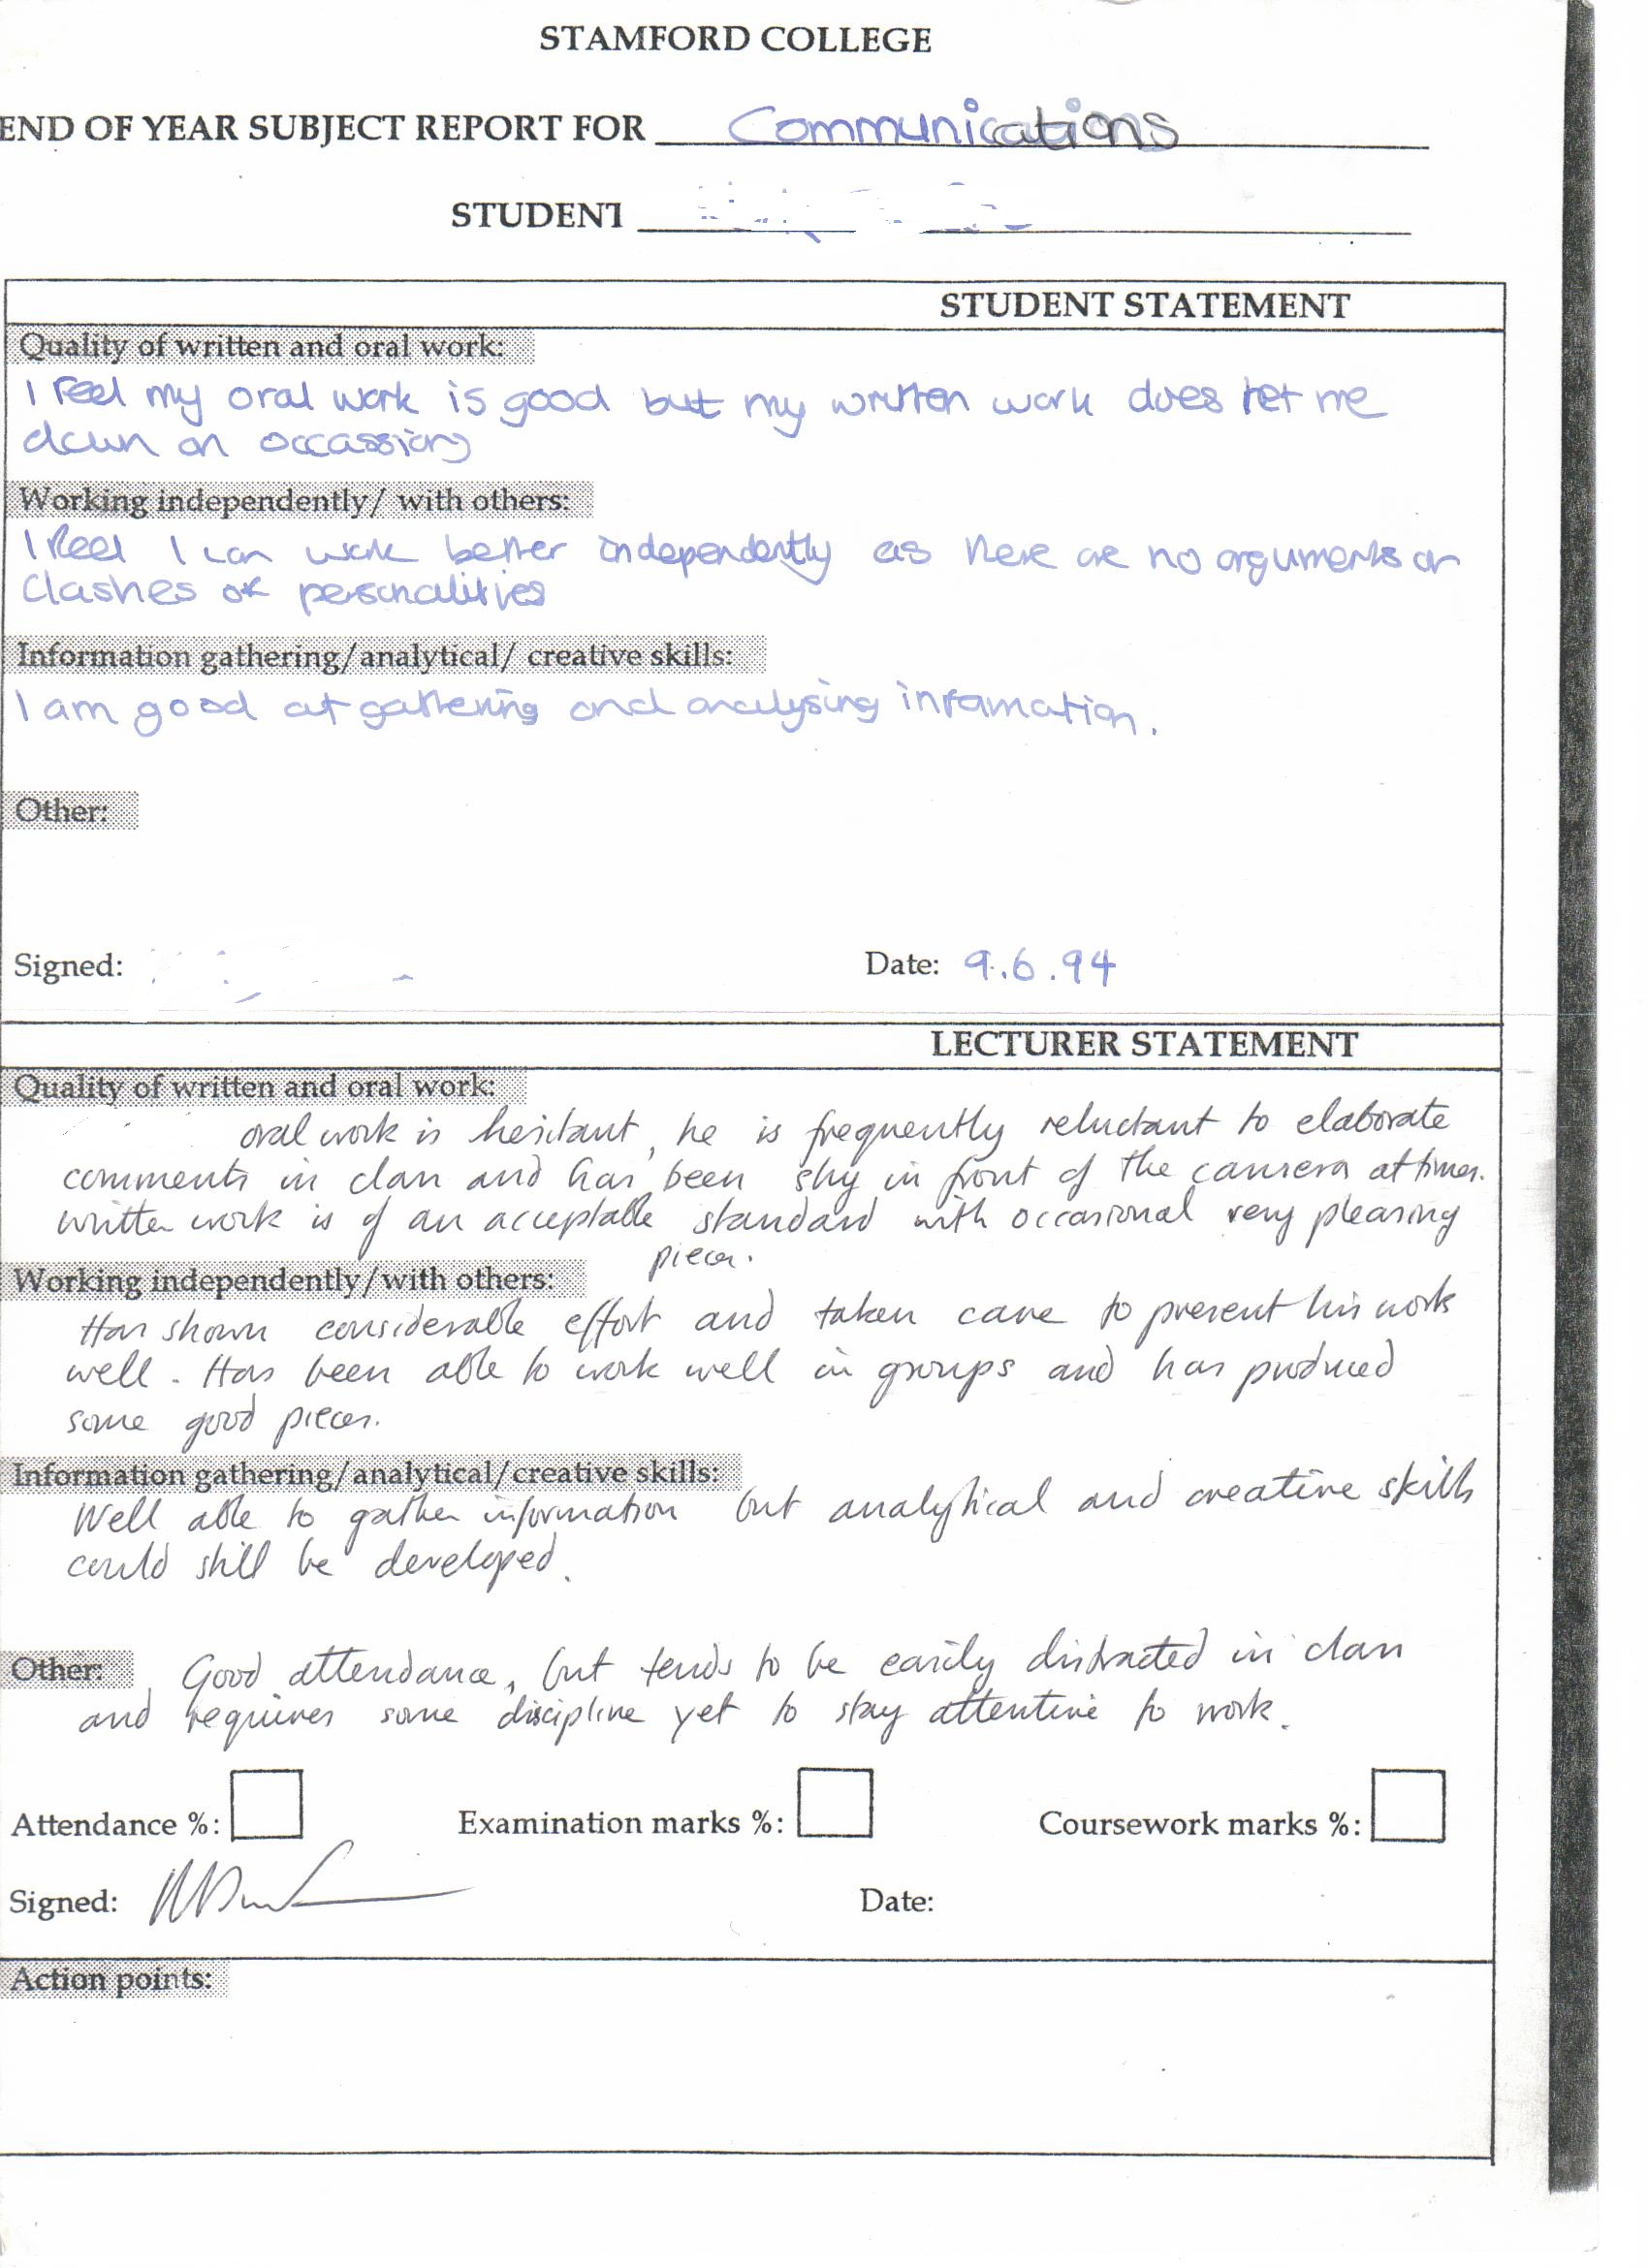 STAMFORD COLLEGE
END OF YEAR SUBJECT REPORT FOR Communications
STUDENT
STUDENT STATEMENT
Quality of written and oral work:
I feel my oral work is good but my written work does let me
down on occassions
Working independently/ with others:
I feel I can work better independently as there are no arguments or
clashes of personalities
Information gathering/analytical/ creative skills:
I am good at gathering and analysing information.
Other:
Signed: Date: 9.6.94
LECTURER STATEMENT
Quality of written and oral work:
oral work is hesitant, he is frequently reluctant to elaborate
comments in class and has been shy in front of the camera at times.
written work is of an acceptable standard with occasional very pleasing
pieces.
Working independently/with others:
Has shown considerable effort and taken care to present his work
well. Has been able to work well in groups and has produced
some good pieces.
Information gathering/analytical/creative skills:
Well able to gather information but analytical and creative skills
could still be developed.
Other: Good attendance, but tends to be easily distracted in class
and requires some discipline yet to stay attentive to work.
Attendance %: Examination marks %: Coursework marks %:
Signed: Date:
Action points: